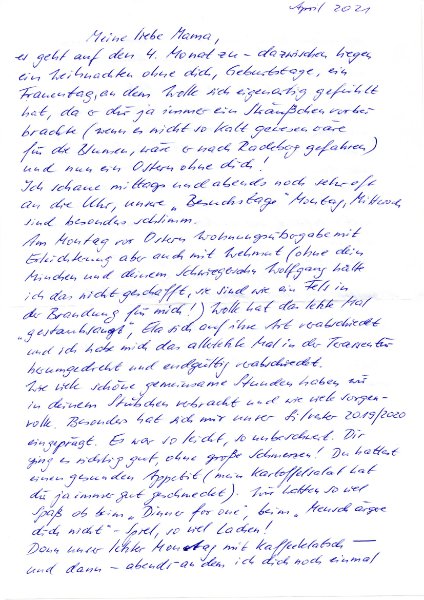 April 2021
Meine liebe Mama,
es geht auf den 4. Monat zu – dazwischen liegen
ein Weihnachten ohne dich, Geburtstage, ein
Frauentag, an dem Wolle sich eigenartig gefühlt
hat, da er dir ja immer ein Sträußchen vorbei
brachte (wenn es nicht so kalt gewesen wäre
für die Blumen, wäre er nach Radebg gefahren)
und nun ein Ostern ohne dich!
Ich schaue mittags und abends noch sehr oft
an die Uhr, unsere „Besuchstage" Montag, Mittwoch
sind besonders schlimm.
Am Montag vor Ostern Wohnungsübergabe mit
Erleichterung aber auch mit Wehmut (ohne dein
und deinem Schwiegersohn Wolfgang hätte
ich das nicht geschafft, sie sind wie ein Fels in
der Brandung für mich!) Wolle hat das letzte Mal
„gestaubsaugt", Ela sich auf ihre Art verabschiedet
und ich habe mich das allerletzte Mal in der Terassentür
herumgedreht und endgültig verabschiedet.
Wie viele schöne gemeinsame Stunden haben wir
in deinem Stübchen verbracht und wie viele sorgen-
volle. Besonders hat sich mir unser Silvester 2019/2020
eingeprägt. Es war so leicht, so unbeschwert. Dir
ging es richtig gut, ohne große Schmerzen! Du hattest
einen gesunden Appetit (mein Kartoffelsalat hat
dir ja immer gut geschmeckt). Wir hatten so viel
Spaß ob beim „Dinner for one", beim „Mensch ärgere
dich nicht" – Spiel, so viel Lachen!
Dann unser letzter Montag mit Kaffeeklatsch –
und dann – abends – an dem ich dich noch einmal